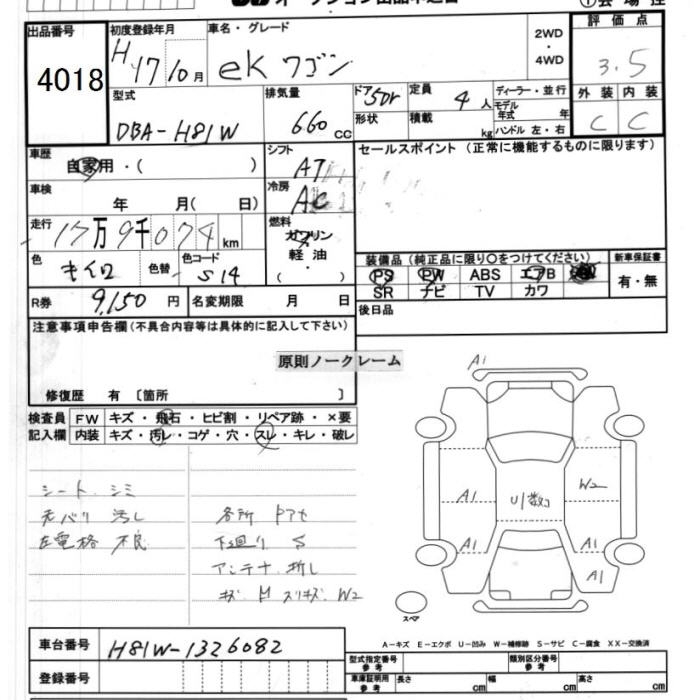 出品番号
4018
初度登録年月
H17 10月
車名・グレード
eK ワゴン
2WD
・
4WD
評価点
3.5
型式
DBA-H81W
排気量
660 cc
ドア 5Dr
形状
定員 4人
積載 kg
ディーラー・並行
モデル年式 年
ハンドル 左・右
外装 内装
C C
車歴
自家用・( )
シフト
AT
セールスポイント (正常に機能するものに限ります)
車検
年 月( 日)
冷房
AC
走行
17万9千074km
燃料
ガソリン
軽油・
( )
色
キイロ
色替
色コード
S14
装備品 (純正品に限り○をつけてください)
新車保証書
PS PW ABS エアB
SR ナビ TV カワ
有・無
R券 9,150 円
名変期限 月 日
後日品
注意事項申告欄(不具合内容等は具体的に記入して下さい)
原則ノークレーム
修復歴 有 〔箇所 〕
検査員
記入欄
FW キズ・飛石・ヒビ割・リペア跡・×要
内装 キズ・汚レ・コゲ・穴・スレ・キレ・破レ
シート シミ
天バリ 汚レ
左電格 不良
各所 ドアセ
下廻り S
アンテナ 折レ
キズ H スリキズ W2
A1
A1
U1数コ
W2
A1
A1
A1
スペア
A-キズ E-エクボ U-凹み W-補修跡 S-サビ C-腐食 XX-交換済
車台番号
H81W-1326082
登録番号
型式指定番号
参考
類別区分番号
参考
車庫証明用
参考
長さ cm
幅 cm
高さ cm